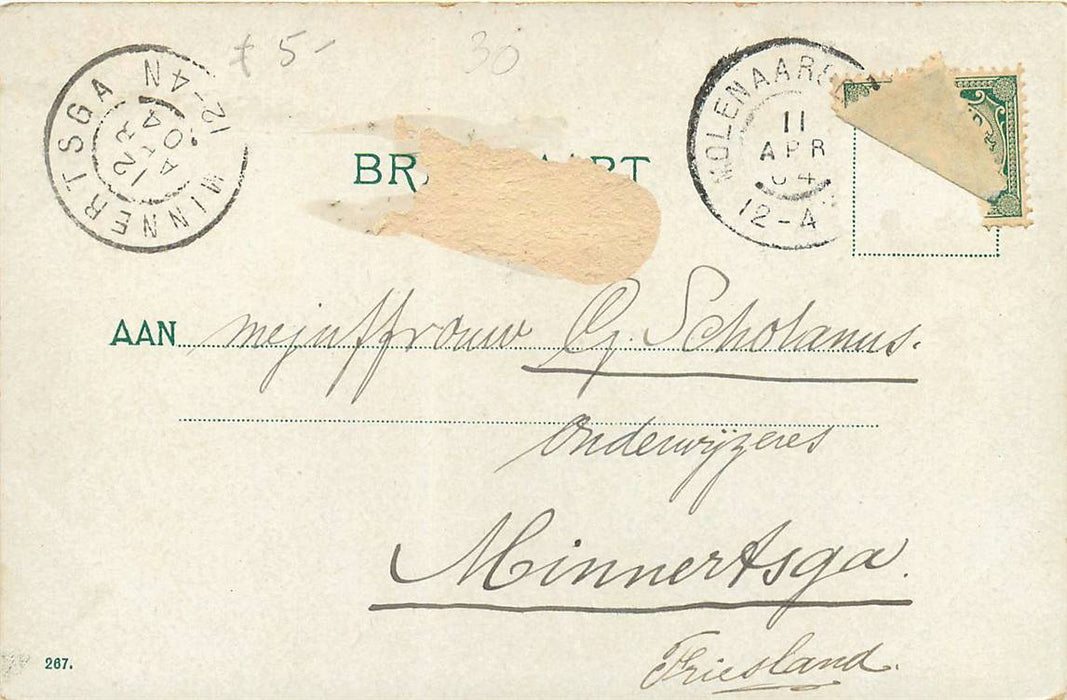 + 5-
30
MINNERTSGA
12-4N
12 APR 04
11
APR
04
12-4
AAN mejuffrouw Cj. Scholanus.
Onderwijzeres
Minnertsga.
Friesland.
267.